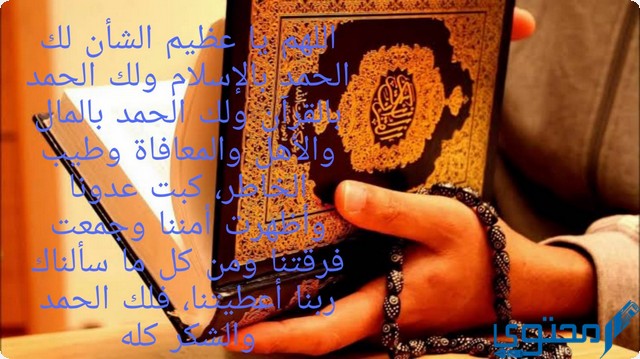 اللهم يا عظيم الشأن لك
الحمد بالإسلام ولك الحمد
بالقرآن ولك الحمد بالمال
والأهل والمعافاة وطيب
الخاطر، كبت عدونا
وأظهرت أمننا وجمعت
فرقتنا ومن كل ما سألناك
ربنا أعطيتنا، فلك الحمد
والشكر كله
محتوى